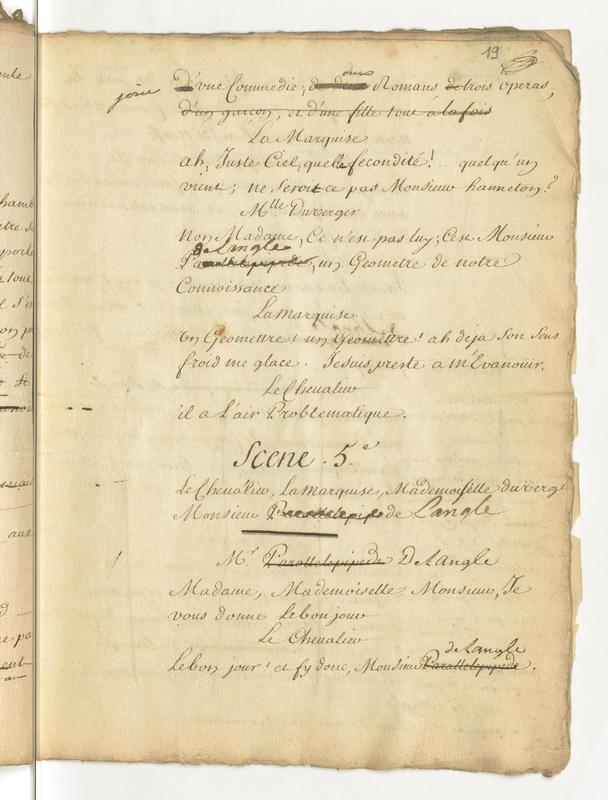 19
jour D'vne Commedie, de deux Romans de trois operas,
d'un garçon, et d'une fille tout a la fois
La Marquise
ah, Juste Ciel, quelle fecondité! ... quelqu'un
vient; ne seroit ce pas Monsieur hanneton?
Mlle Duverger
Non Madame, Ce n'est pas luy; C'est Monsieur
de Langle
Parallelepipede, un Geometre de notre
Connoissance
La marquise
Un Geomettre! un Geomettre! ah deja son sens
froid me glace. Je suis preste a m'Evanoüir.
Le Chevalier
il a l'air Problematique.
Scene 5.e
Le Chevalier, La marquise, Mademoiselle duverge
Monsieur Parallelepipede de Langle
Mr. Parallelepipede De Langle
Madame, Mademoiselle, Monsieur, Je
vous donne le bon jour
Le Chevalier
de Langle
Le bon jour! et fy donc, Monsieur Parallelepipede.